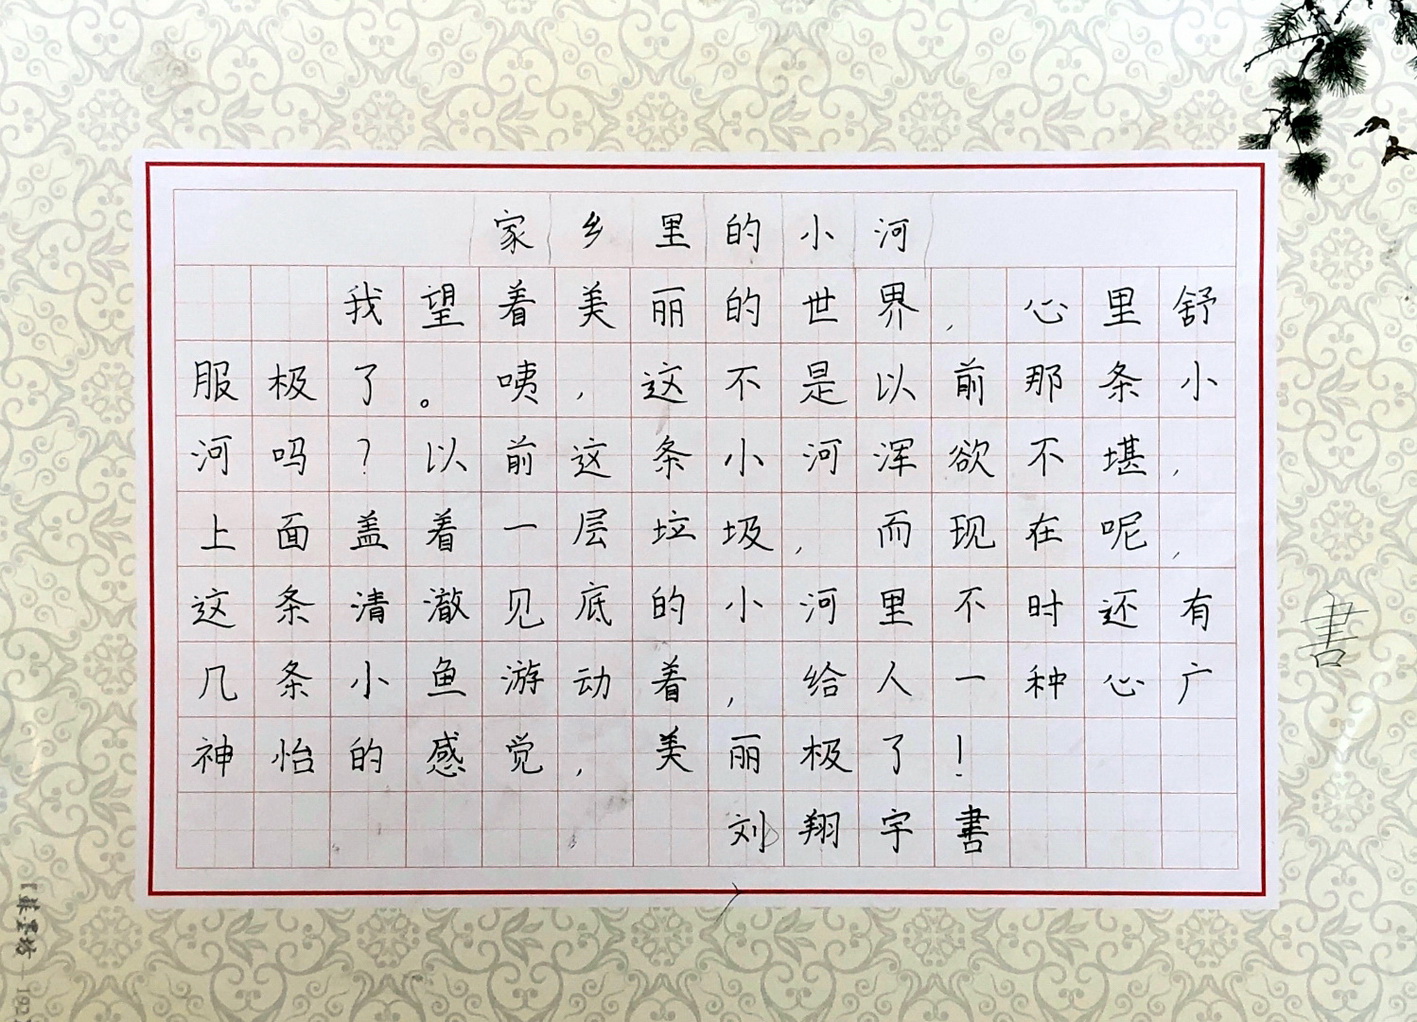 家乡里的小河
我望着美丽的世界，心里舒
服极了。咦，这不是以前那条小
河吗？以前这条小河浑欲不堪，
上面盖着一层垃圾，而现在呢，
这条清澈见底的小河里不时还有
几条小鱼游动着，给人一种心广
神怡的感觉，美丽极了！
刘翔宇書
書